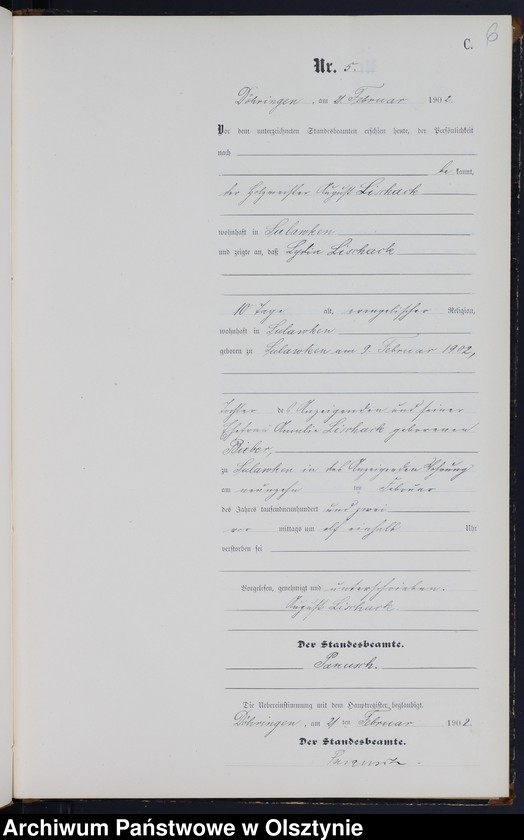 6
C.
Nr. 5.
Döhringen, am 21 Februar 1902.
Vor dem unterzeichneten Standesbeamten erschien heute, der Persönlichkeit
nach
be kannt,
der Holzmeister August Lischack
wohnhaft in Sulawken
und zeigte an, daß Lydia Lischack
10 Tage alt, evangelischer Religion,
wohnhaft in Sulawken
geboren zu Sulawken am 9. Februar 1902,
Tochter des Anzeigenden und seiner
Ehefrau Amalie Lischack geborenen
Bieber,
zu Sulawken in des Anzeigenden Wohnung
am neunzehn ten Februar
des Jahres tausendneunhundert und zwei
vor mittags um elf einhalb Uhr
verstorben sei
Vorgelesen, genehmigt und unterschrieben.
August Lischack
Der Standesbeamte.
Die Uebereinstimmung mit dem Hauptregister beglaubigt.
Döhringen, am 21 ten Februar 1902.
Der Standesbeamte.
Archiwum Państwowe w Olsztynie